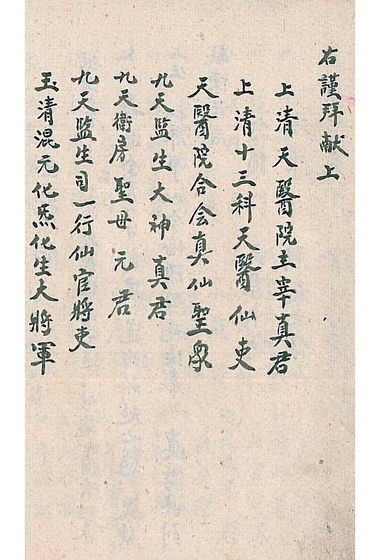 右謹拜献上
上清天醫院主宰真君
上清十三科天醫仙吏
天醫院合会真仙聖衆
九天監生大神真君
九天衛房聖母元君
九天監生司一行仙官將吏
玉清混元化炁化生大將軍